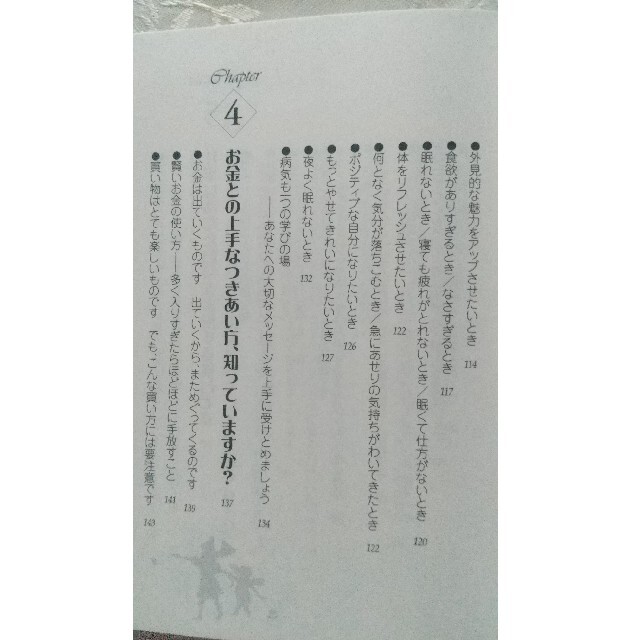 ●外見的な魅力をアップさせたいとき 114
●食欲がありすぎるとき／なさすぎるとき 117
●眠れないとき／寝ても疲れがとれないとき／眠くて仕方がないとき 120
●体をリフレッシュさせたいとき 122
●何となく気分が落ちこむとき／急にあせりの気持ちがわいてきたとき 122
●ポジティブな自分になりたいとき 126
●もっとやせてきれいになりたいとき 127
●夜よく眠れないとき 132
●病気も一つの学びの場
――あなたへの大切なメッセージを上手に受けとめましょう 134
Chapter
4
お金との上手なつきあい方、知っていますか？ 137
●お金は出ていくものです 出ていくから、まためぐってくるのです 139
●賢いお金の使い方――多く入りすぎたらほどほどに手放すこと 141
●買い物はとても楽しいものです でも、こんな買い方には要注意です 143